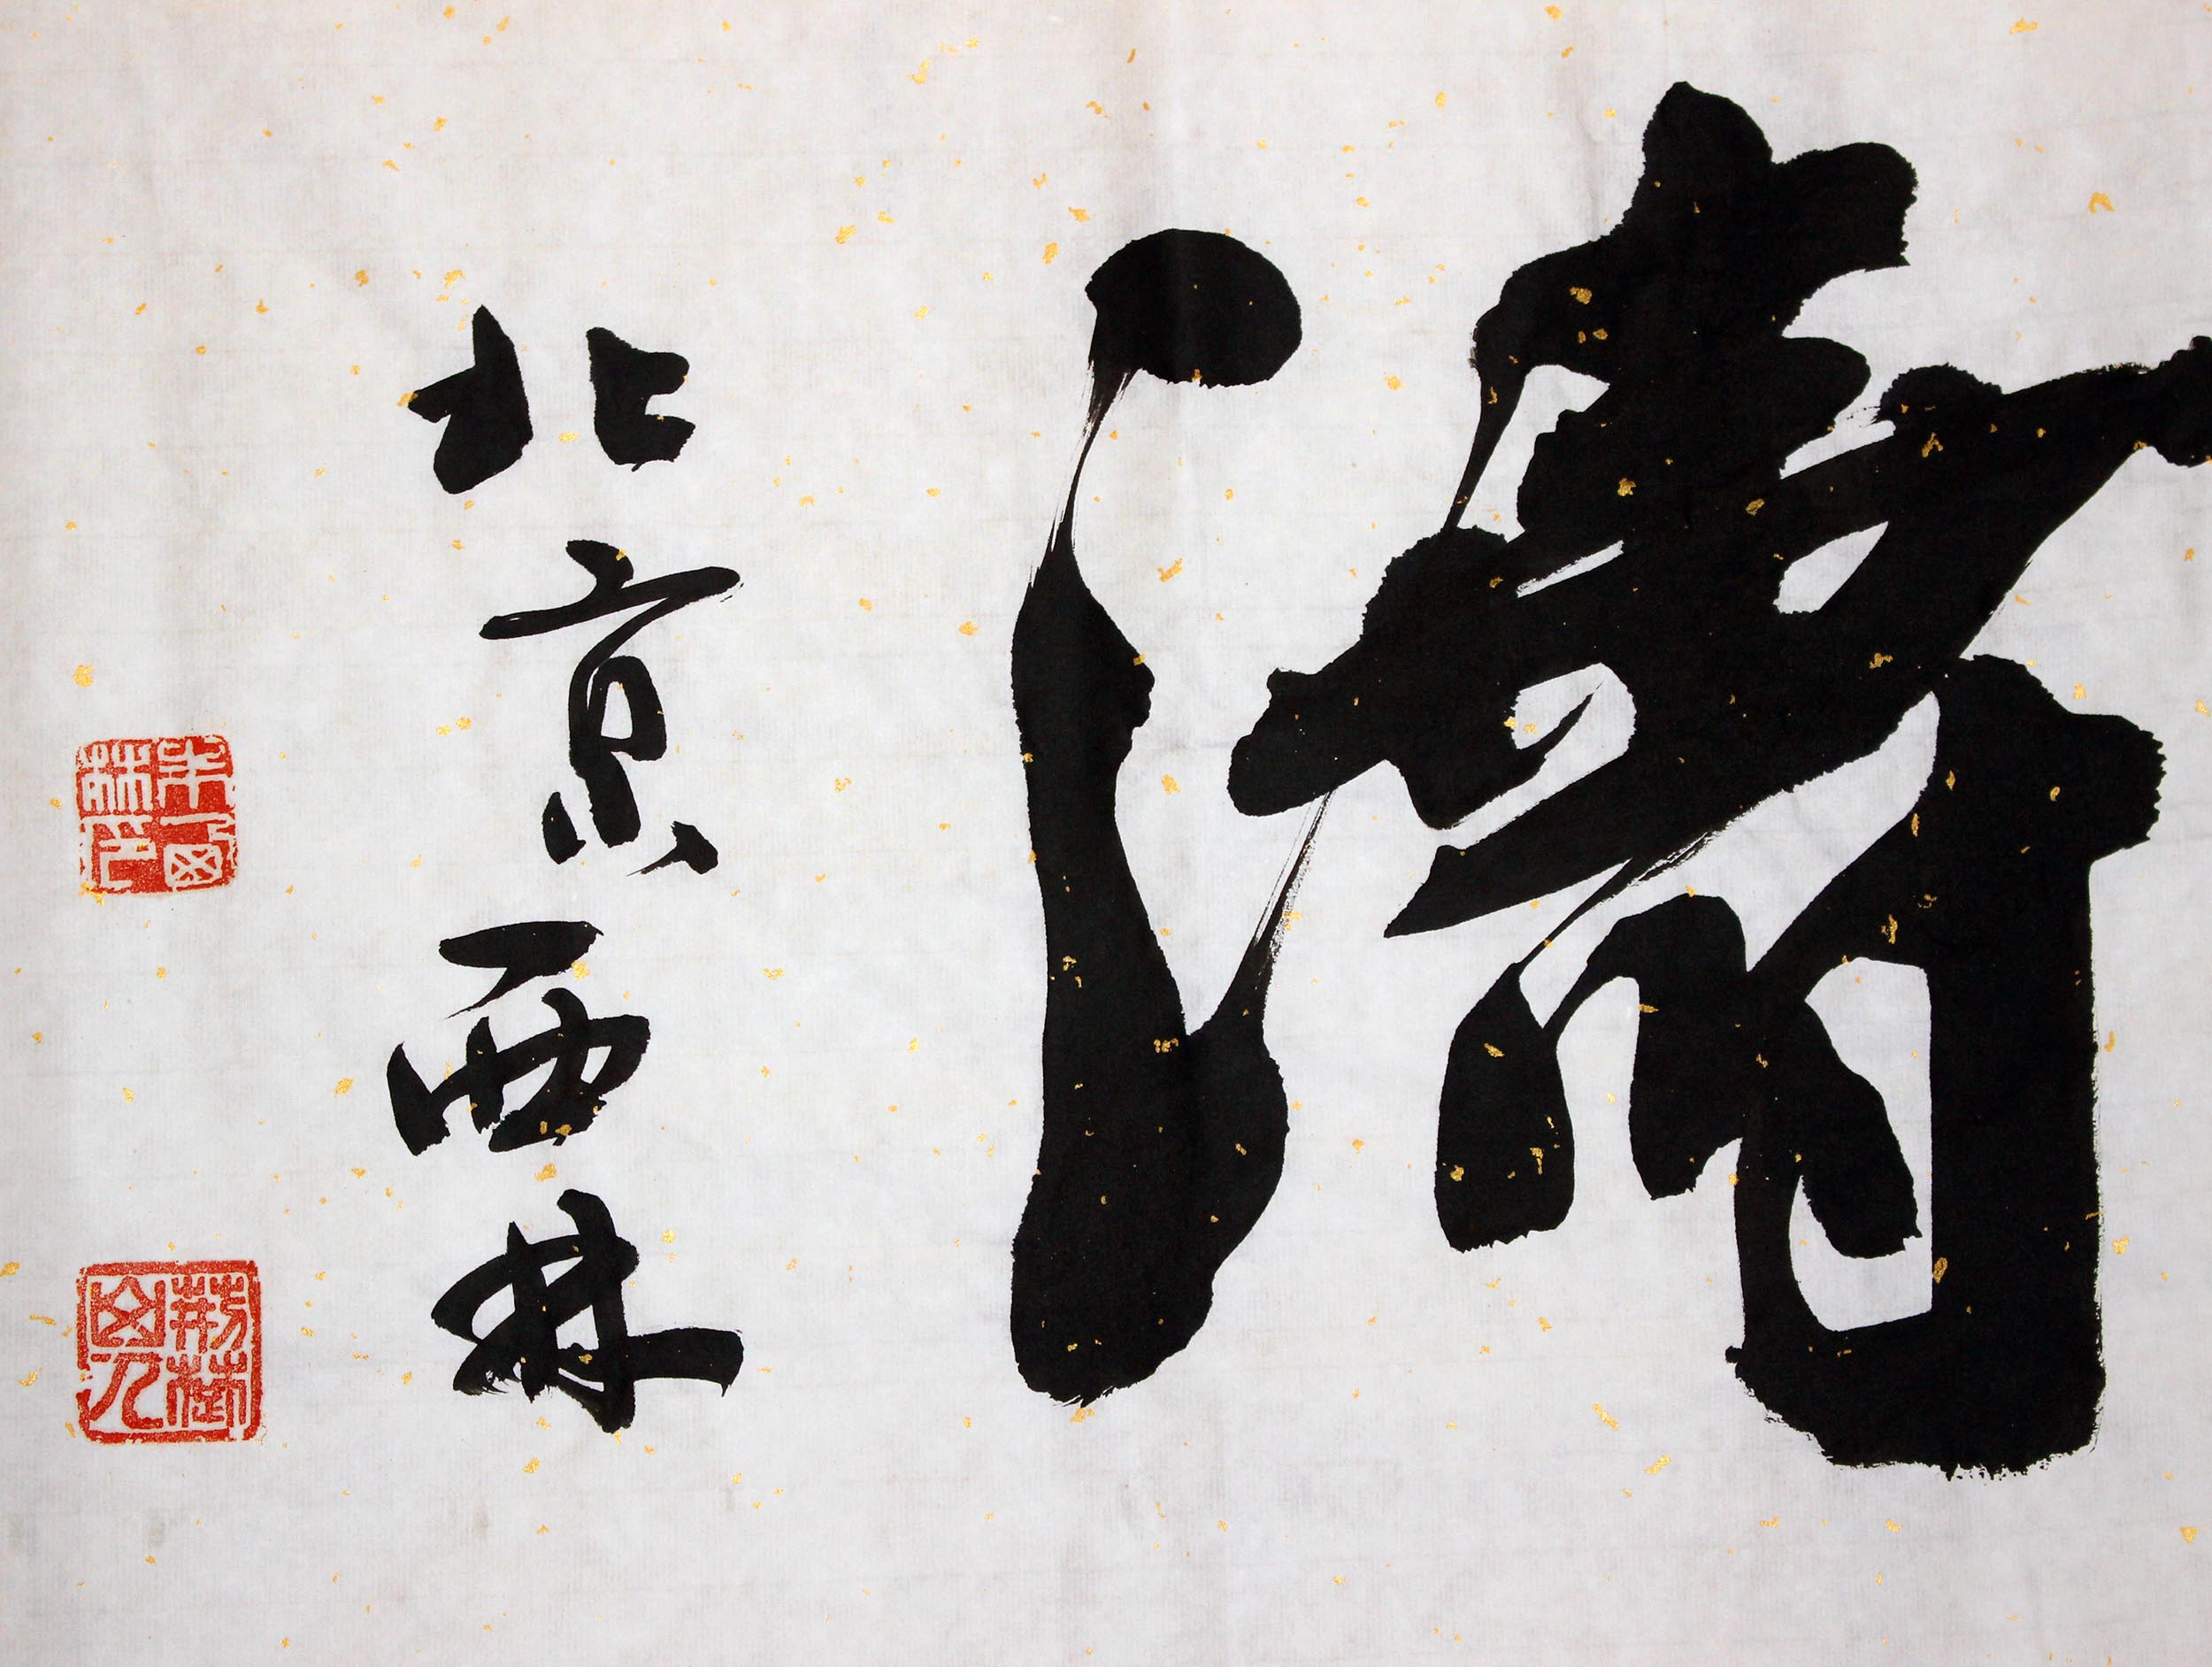 濤
北京西林